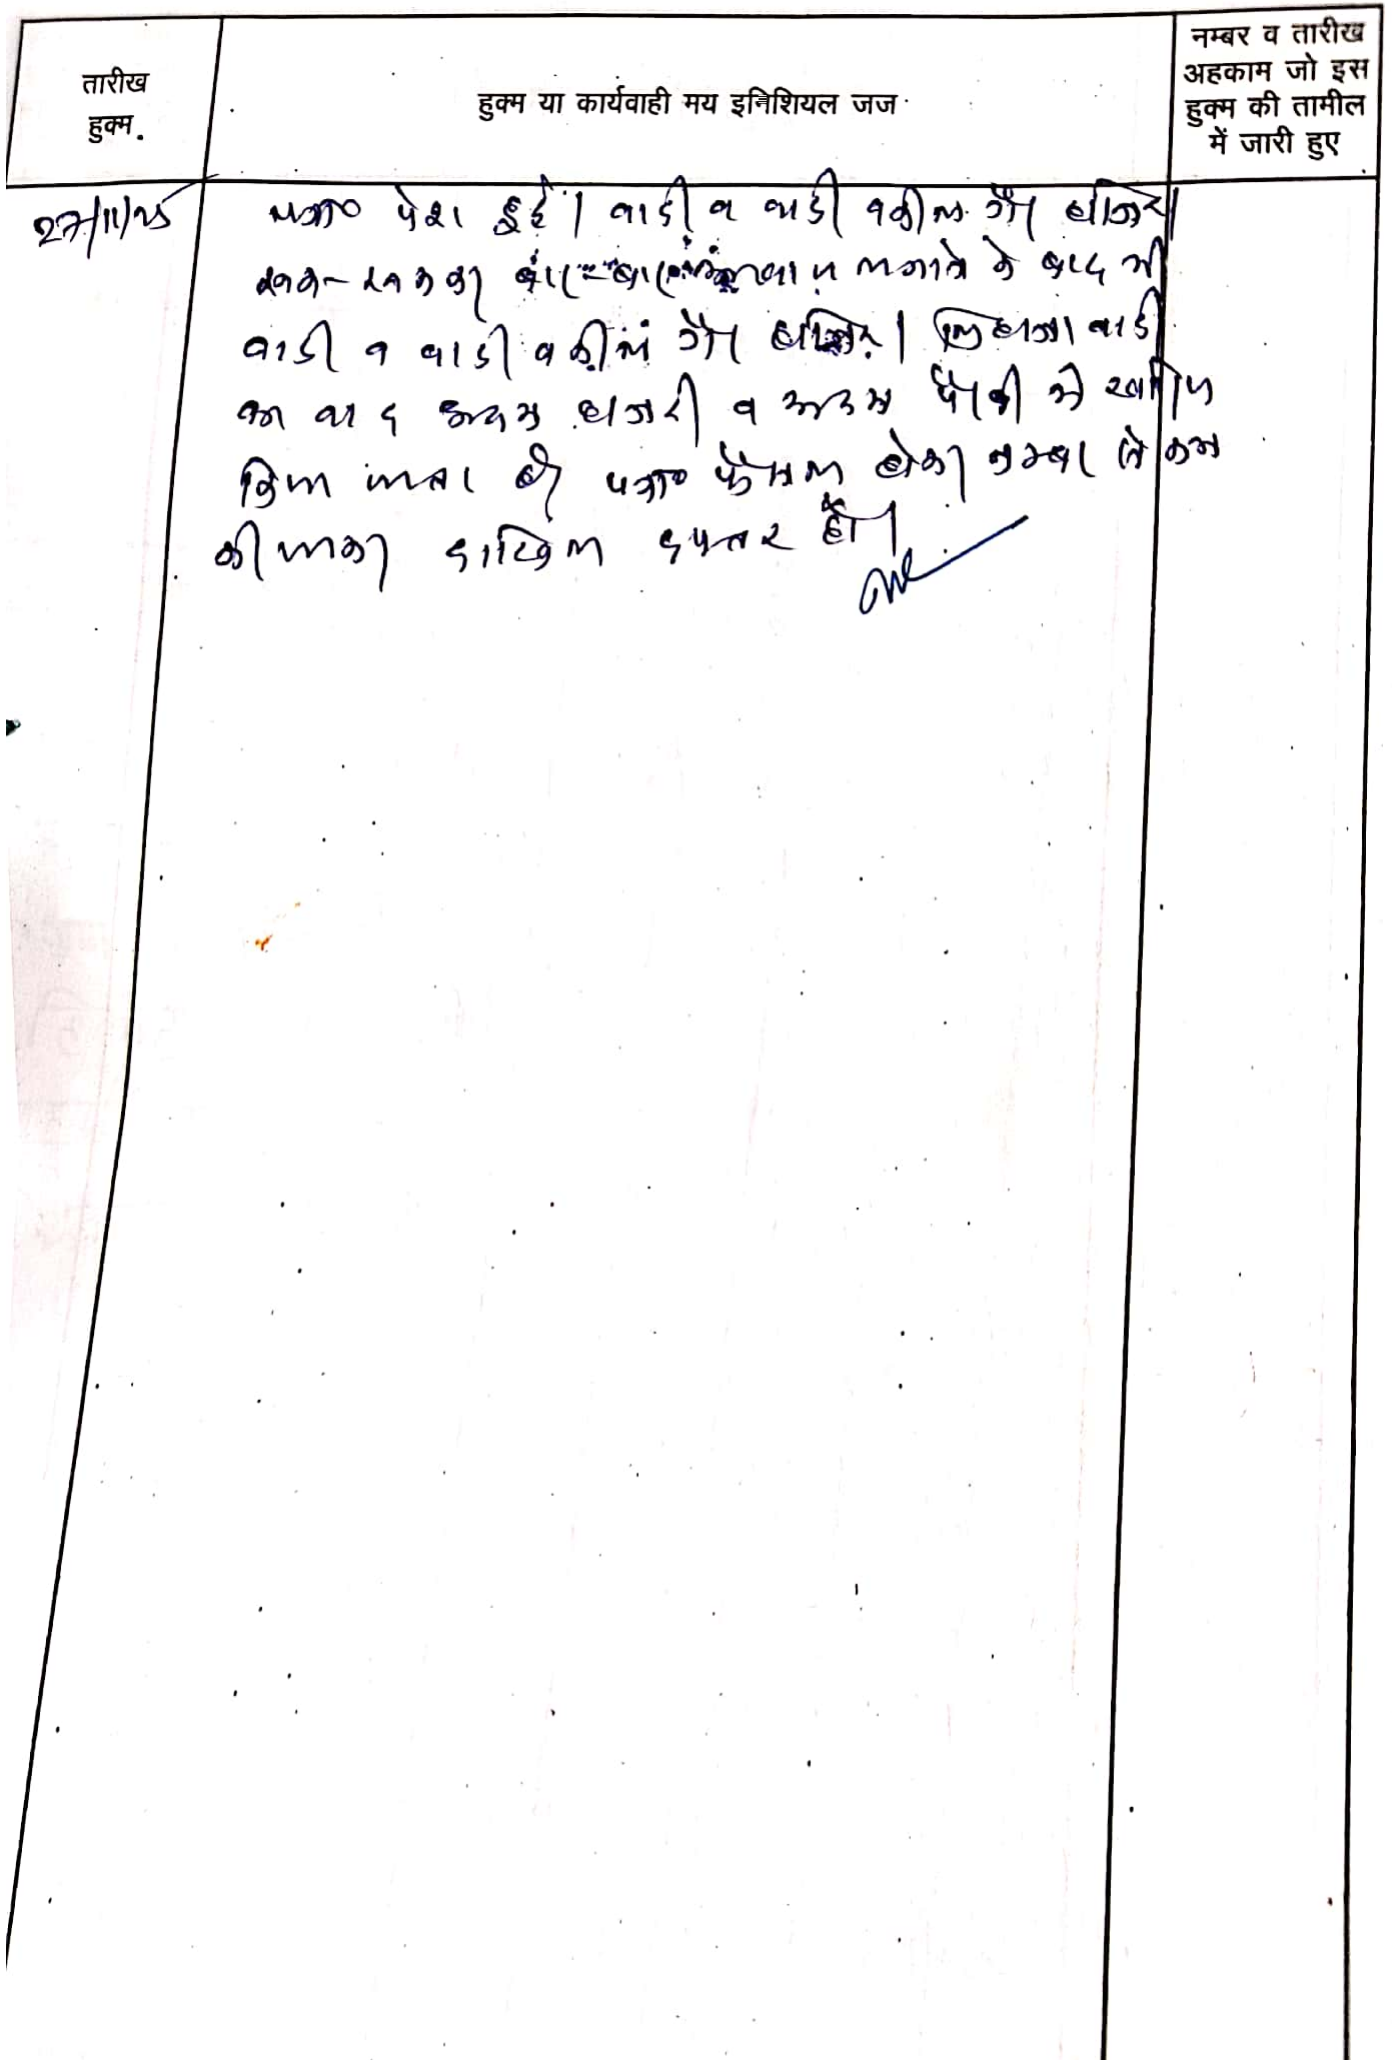 तारीख
हुक्म.
हुक्म या कार्यवाही मय इनिशियल जज
नम्बर व तारीख
अहकाम जो इस
हुक्म की तामील
में जारी हुए
27/11/25
पत्रा० पेश हुई। वादी व वादी वकील गैर हाजिर।
रुक-रुक कर बार-बार आवाज लगाने के बाद भी
वादी व वादी वकील गैर हाजिर। लिहाजा वादी
का वाद अदम हाजरी व अदम पैरवी में खारिज
किया जाता है। पत्रा० फैसल होकर नम्बर से कम
की जाकर दाखिल दफ्तर हो।